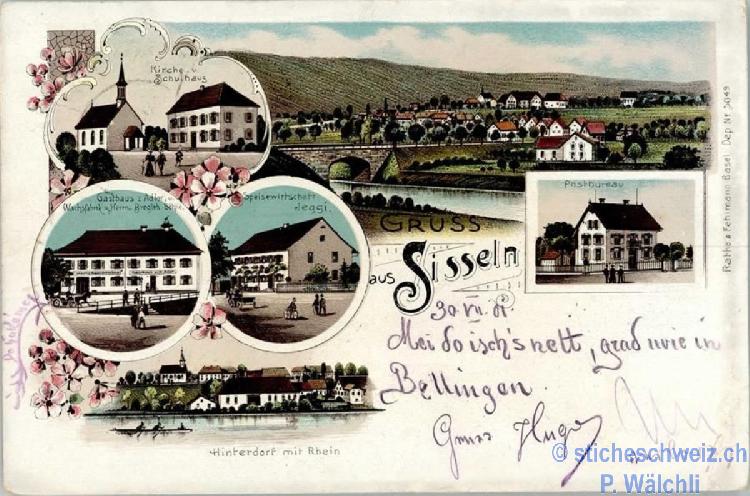 Kirche u
Schulhaus
Gasthaus z. Adler u.
Speisewirtschaft
Jeggi.
Postbureau
GRUSS
aus Sisseln
Hinterdorf mit Rhein
Rathe & Fehrmann Basel. Dep. Nr. 5049
30 VII. 01.
Mei do isch's nett, grad wie in
Bellingen.
Gruss Hugo
© sticheschweiz.ch
P. Wälchli